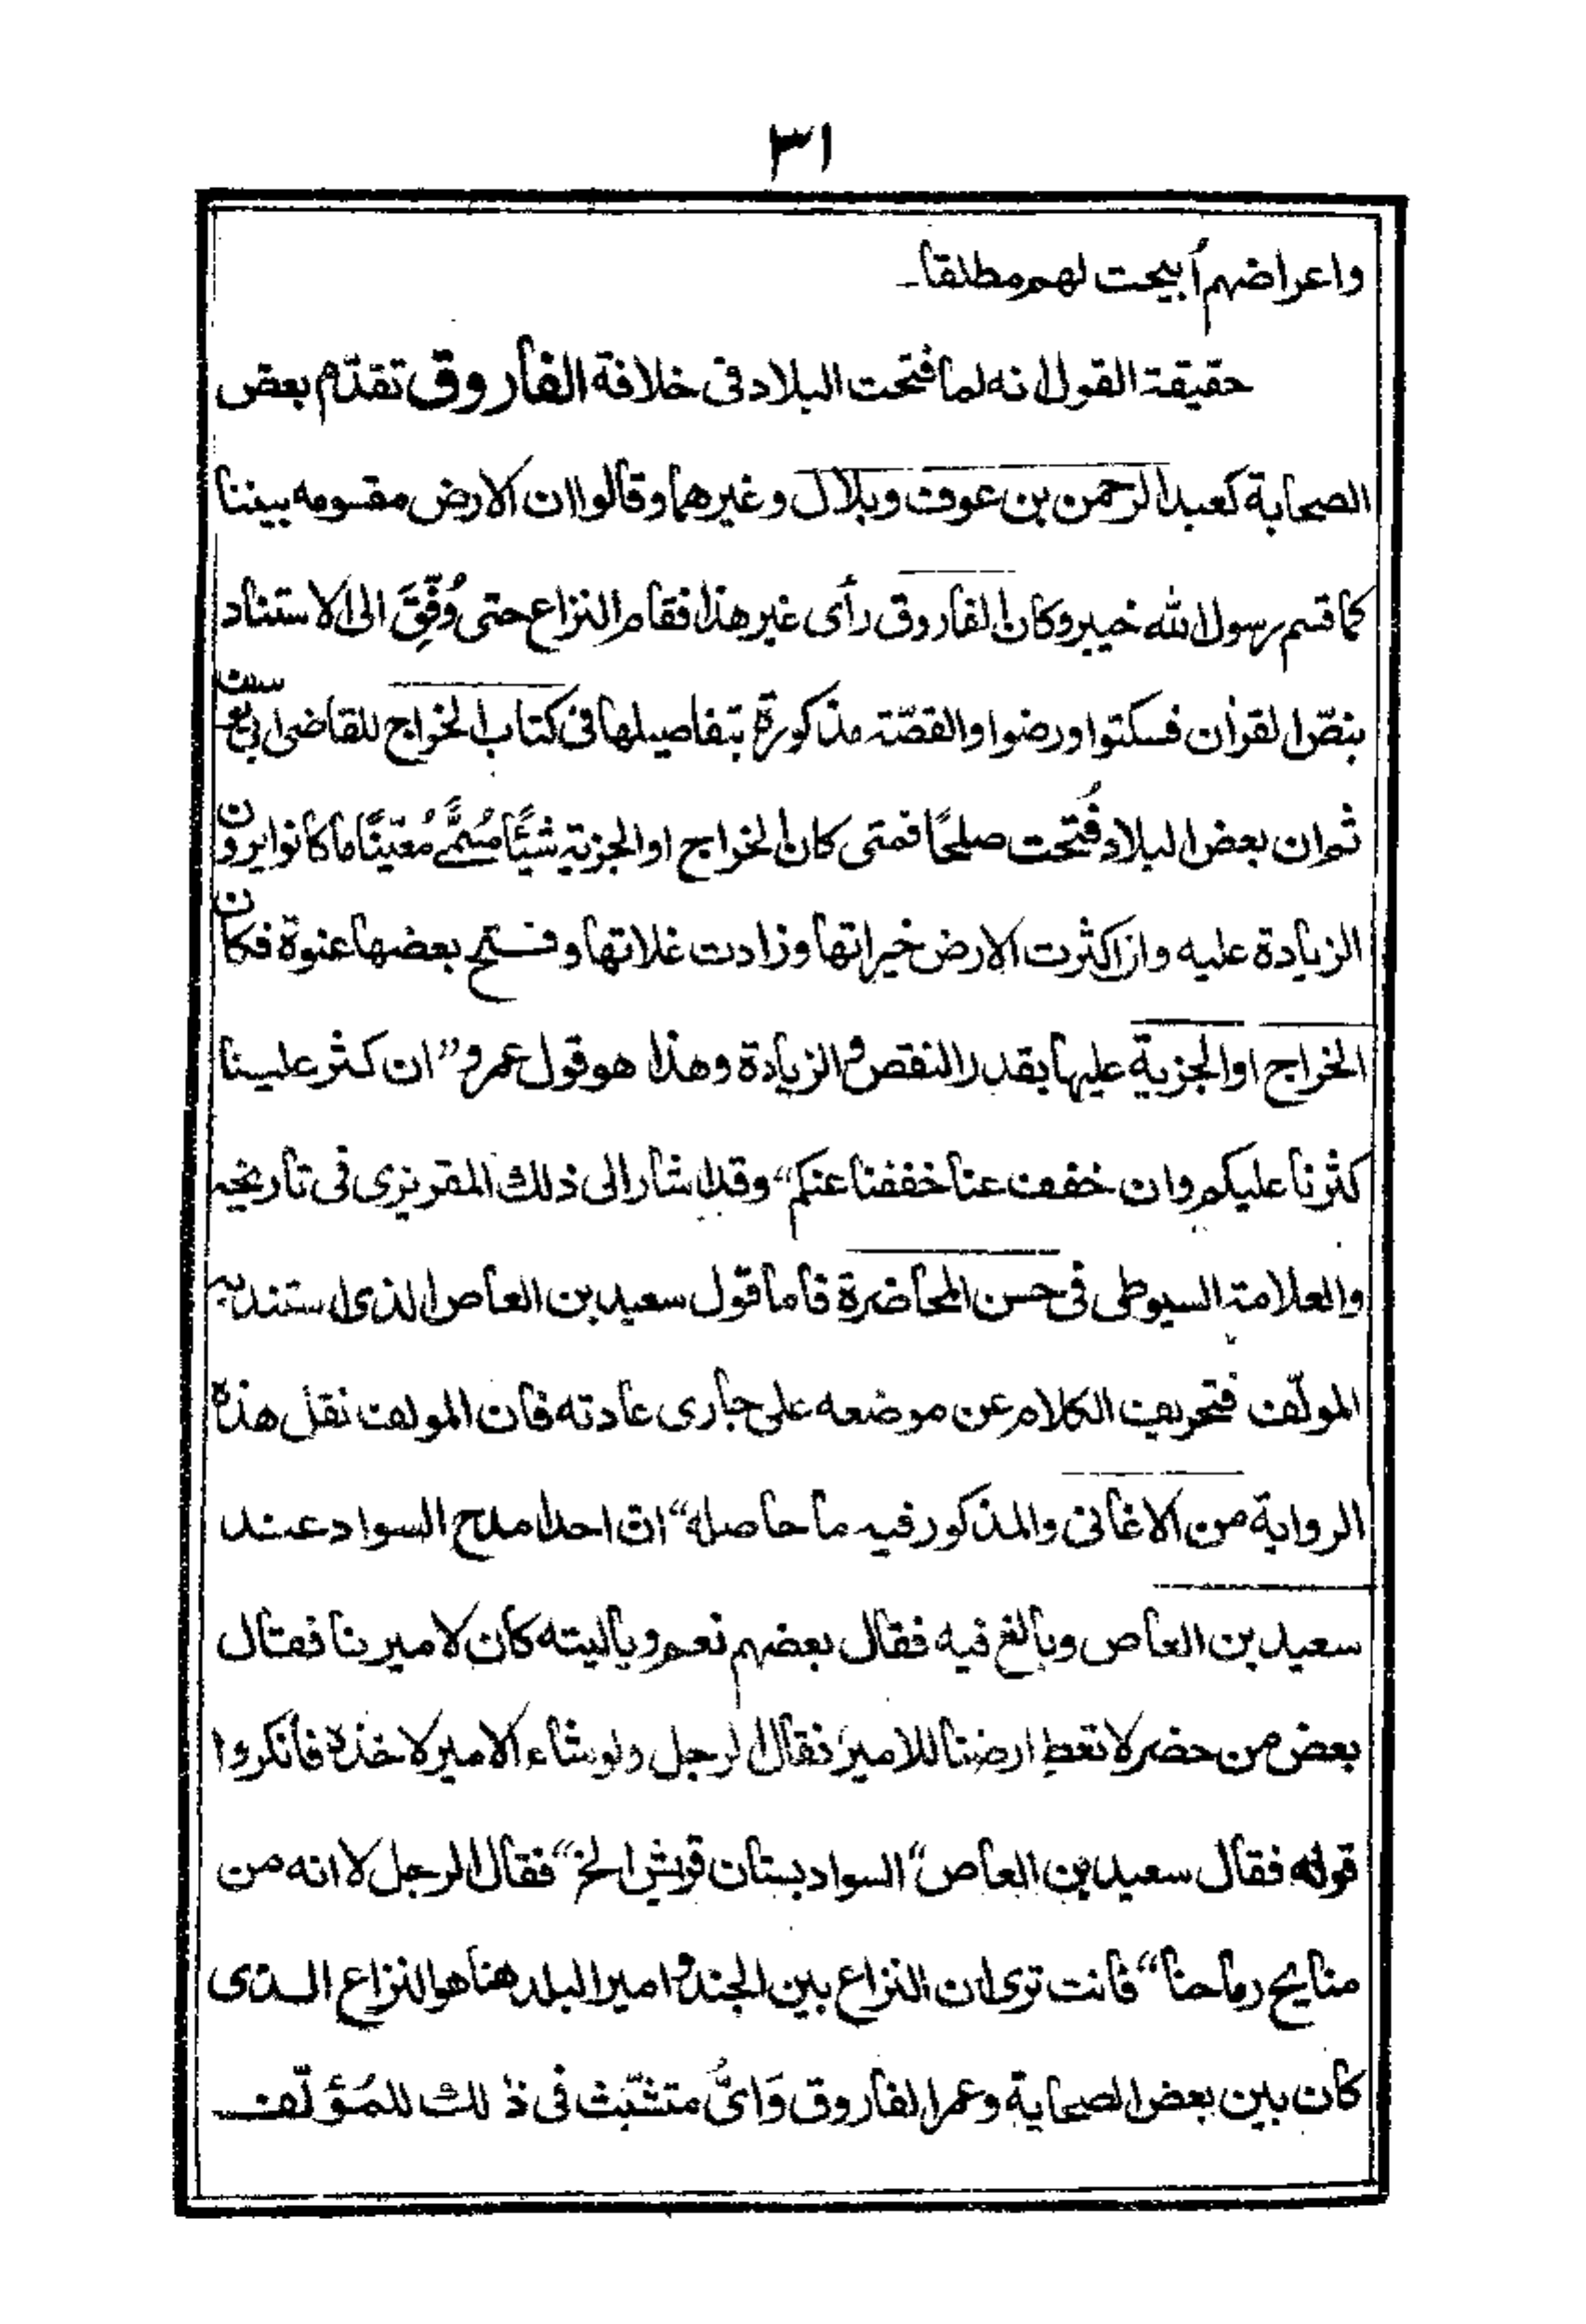 ٣١
واعراضهم أبيحت لهم مطلقا-
حقيقة القول انه لما فُتحت البلاد فى خلافة الفاروق تقدّم بعض
الصحابة كعبد الرحمن بن عوف وبلال وغيرهما وقالوا ان الارض مقسومه بيننا
كما قسم رسول الله خيبر وكان الفاروق رأى غير هذا فقام النزاع حتى وُفِّقَ الى الاستناد
بنصّ القرأن فسكتوا ورضوا والقصّة مذكورة بتفاصيلها فى كتاب الخراج للقاضى ابى يوسف
ثم ان بعض البلاد فُتحت صلحًا فمتى كان الخراج او الجزية شيئًا مُسمًّى مُعيّنًا ما كانوا يرون
الزيادة عليه واذا كثرت الارض خيراتها وزادت غلاتها وفتح بعضها عنوة فكان
الخراج او الجزية عليها بقدر النقص والزيادة وهذا هو قول عمرو ”ان كثر علينا
كثرنا عليكم وان خفف عنا خففنا عنكم“ وقد اشار الى ذلك المقريزى فى تاريخه
والعلامة السيوطى فى حسن المحاضرة فاما قول سعيد بن العاص الذى استند به
المولّف فتحريف الكلام عن موضعه على جارى عادته فان المولف نقل هذه
الرواية من الاغانى والمذكور فيه ما حاصله “ان احدا مدح السواد عند
سعيد بن العاص وبالغ فيه فقال بعضهم نعم وياليته كان لاميرنا فقال
بعض من حضر لا تعط ارضنا للامير فقال الرجل ولو شاء الامير لاخذه فانكروا
قوله فقال سعيد بن العاص “السواد بستان قريش الخ“ فقال الرجل لا انه من
منايح رماحنا“ فانت ترى ان النزاع بين الجند و امير البلد هنا هو النزاع الذى
كان بين بعض الصحابة وعمر الفاروق وَاىُّ متشبّث فى ذلك للمُؤلّف